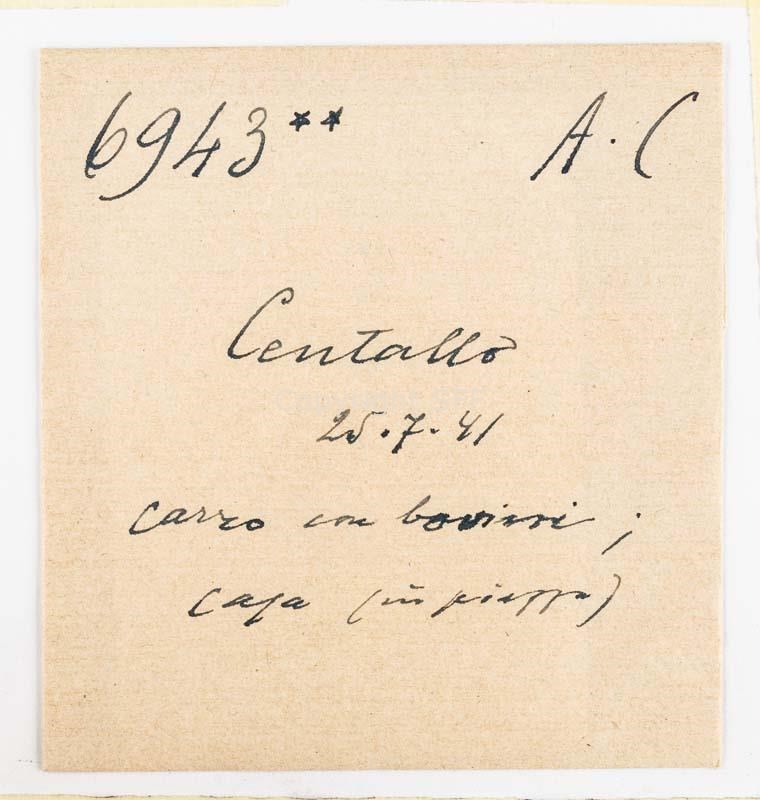 6943** A. C
Centallo
25.7.41
carro con bovini;
casa (in piazza)